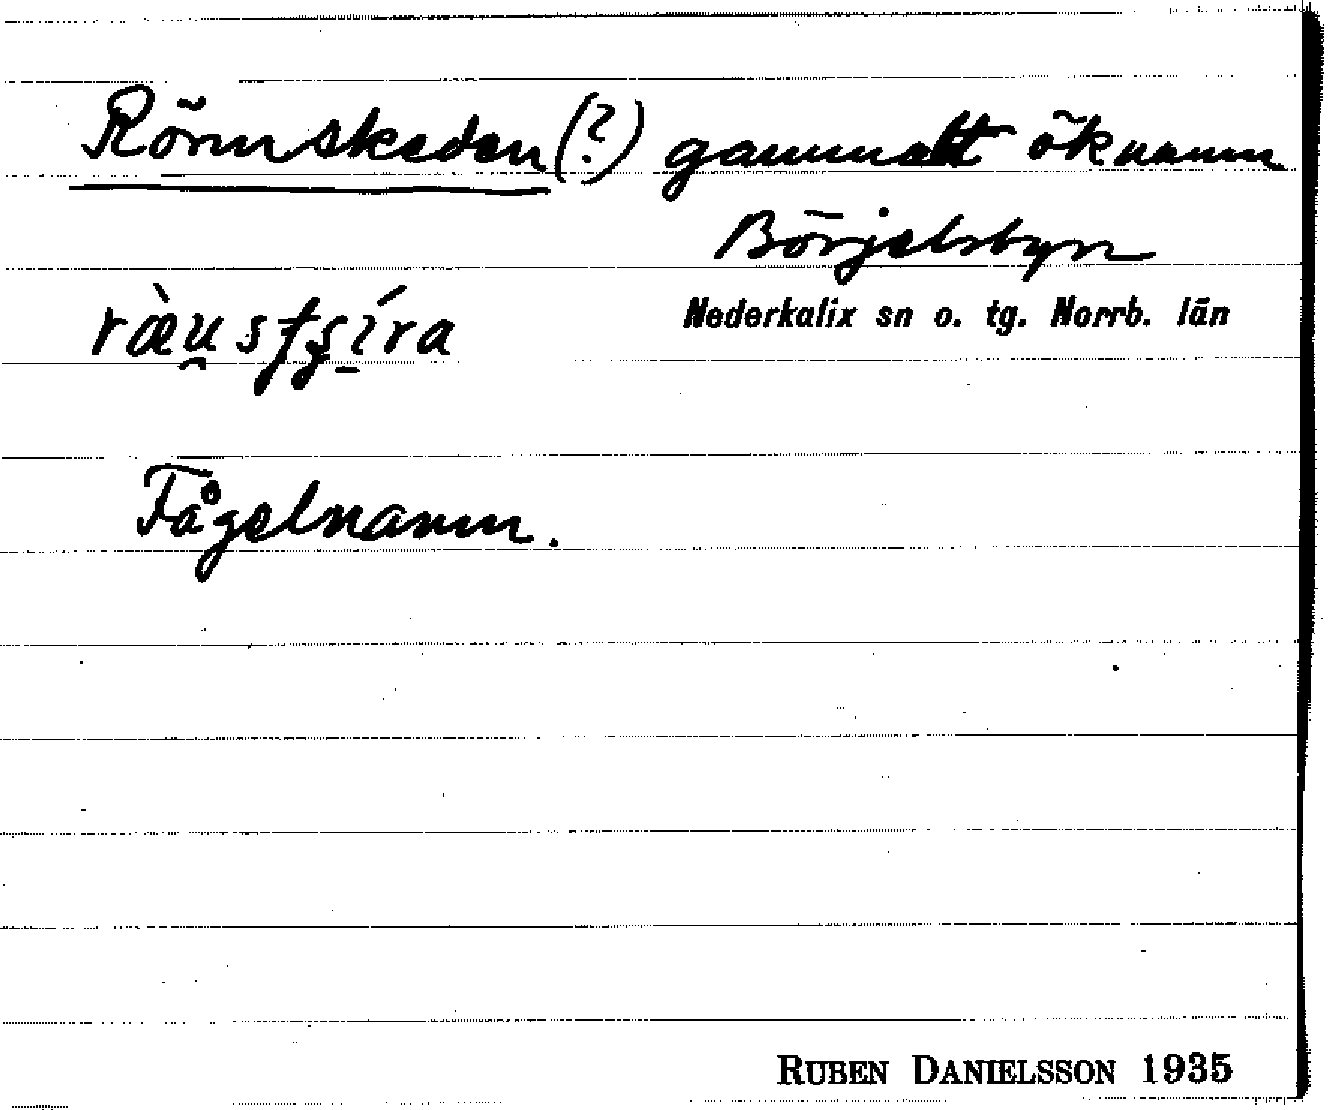 Rörnskeden (?) gammalt öknamn
Börjelsbyn
Nederkalix sn o. tg. Norrb. län
Fågelnamn.
RUBEN DANIELSSON 1935